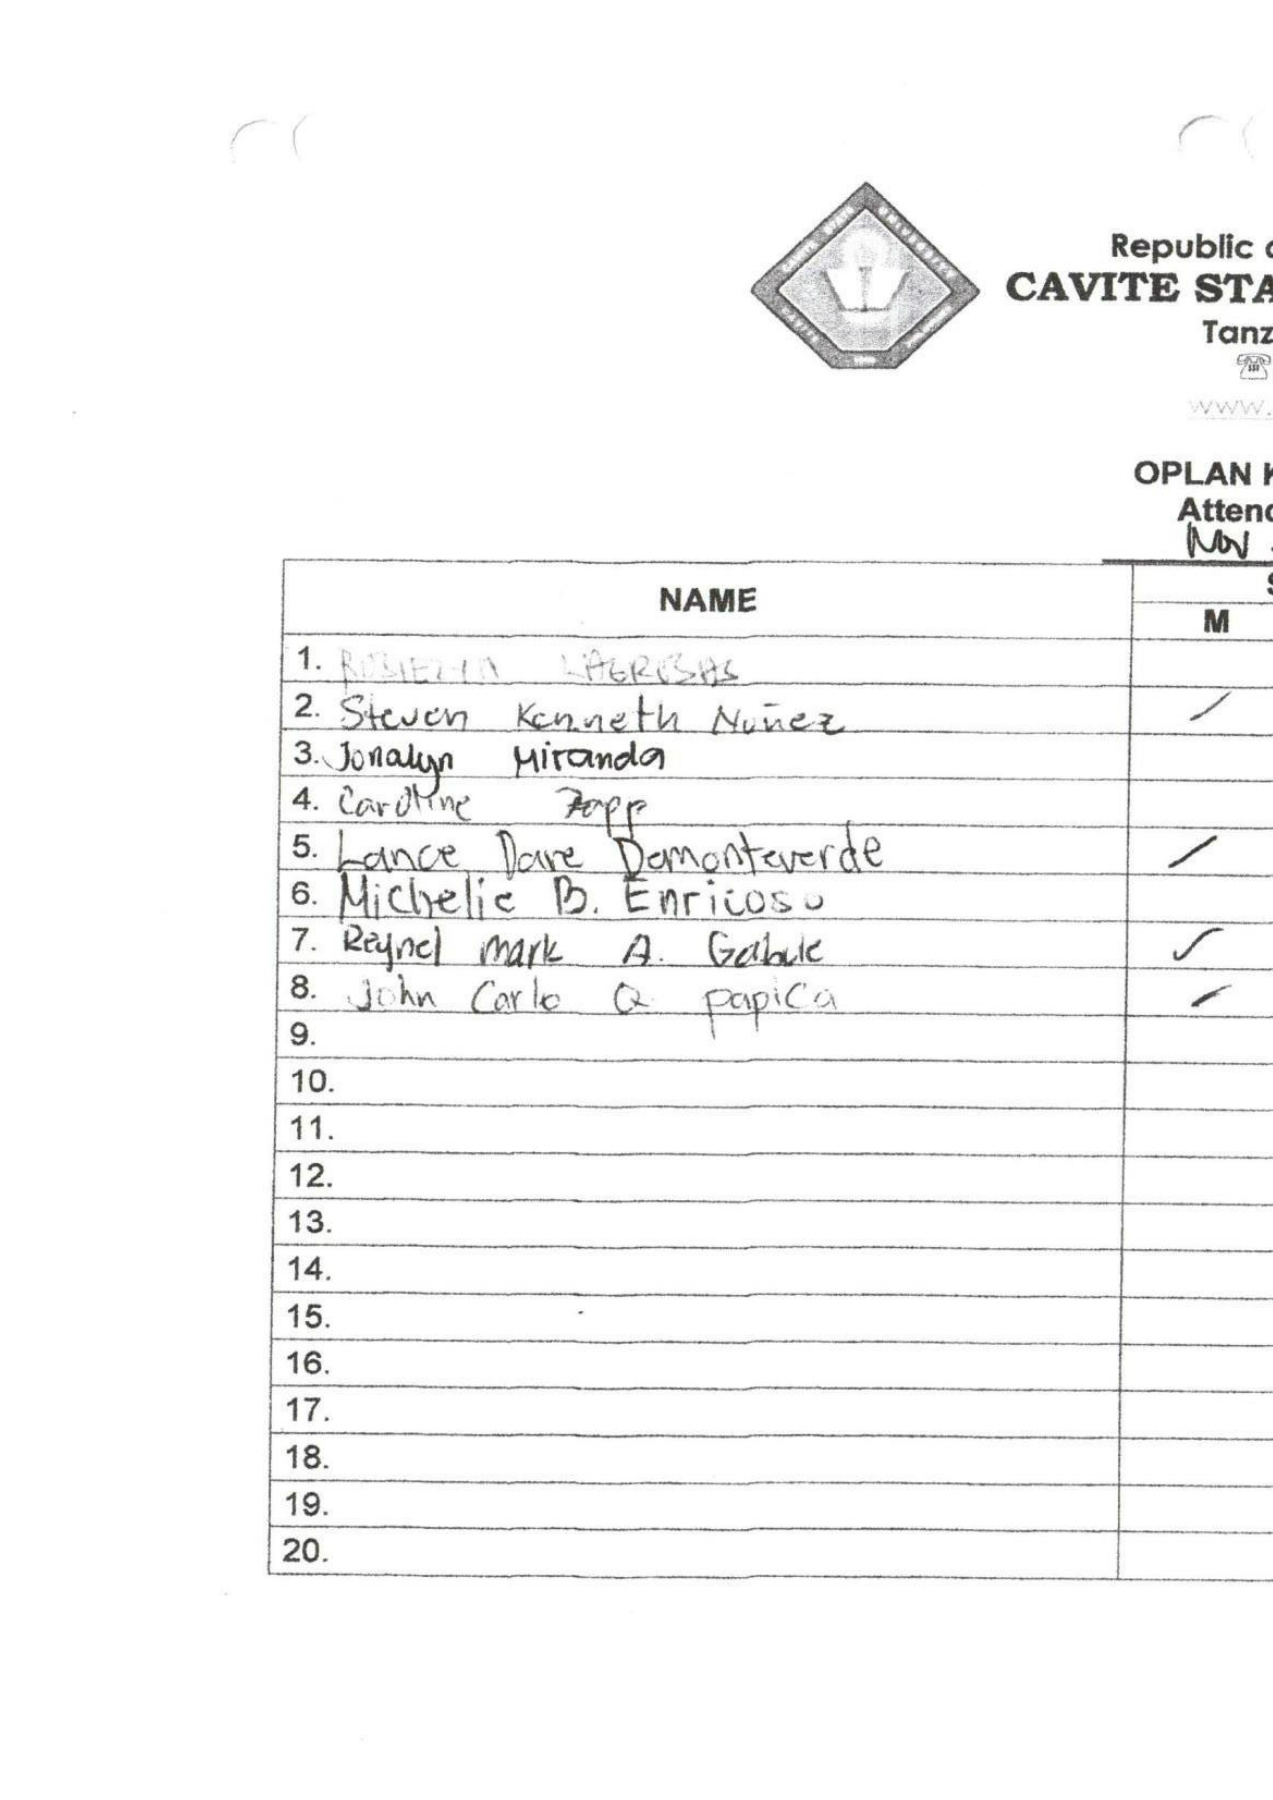 Republic
CAVITE STA
Tanz
www.
OPLAN K
Attend
Nov
NAME
S
M
1. LAGROSAS
2. Steven Kenneth Nuñez
3. Jonalyn Miranda
4. Caroline Zapp
5. Lance Dave Demonteverde
6. Michelie B. Enricoso
7. Reynel mark A. Gabule
8. John Carlo Q papica
9.
10.
11.
12.
13.
14.
15.
16.
17.
18.
19.
20.